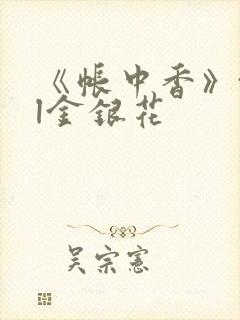 《帐中香》
|金银花
吴宗宪